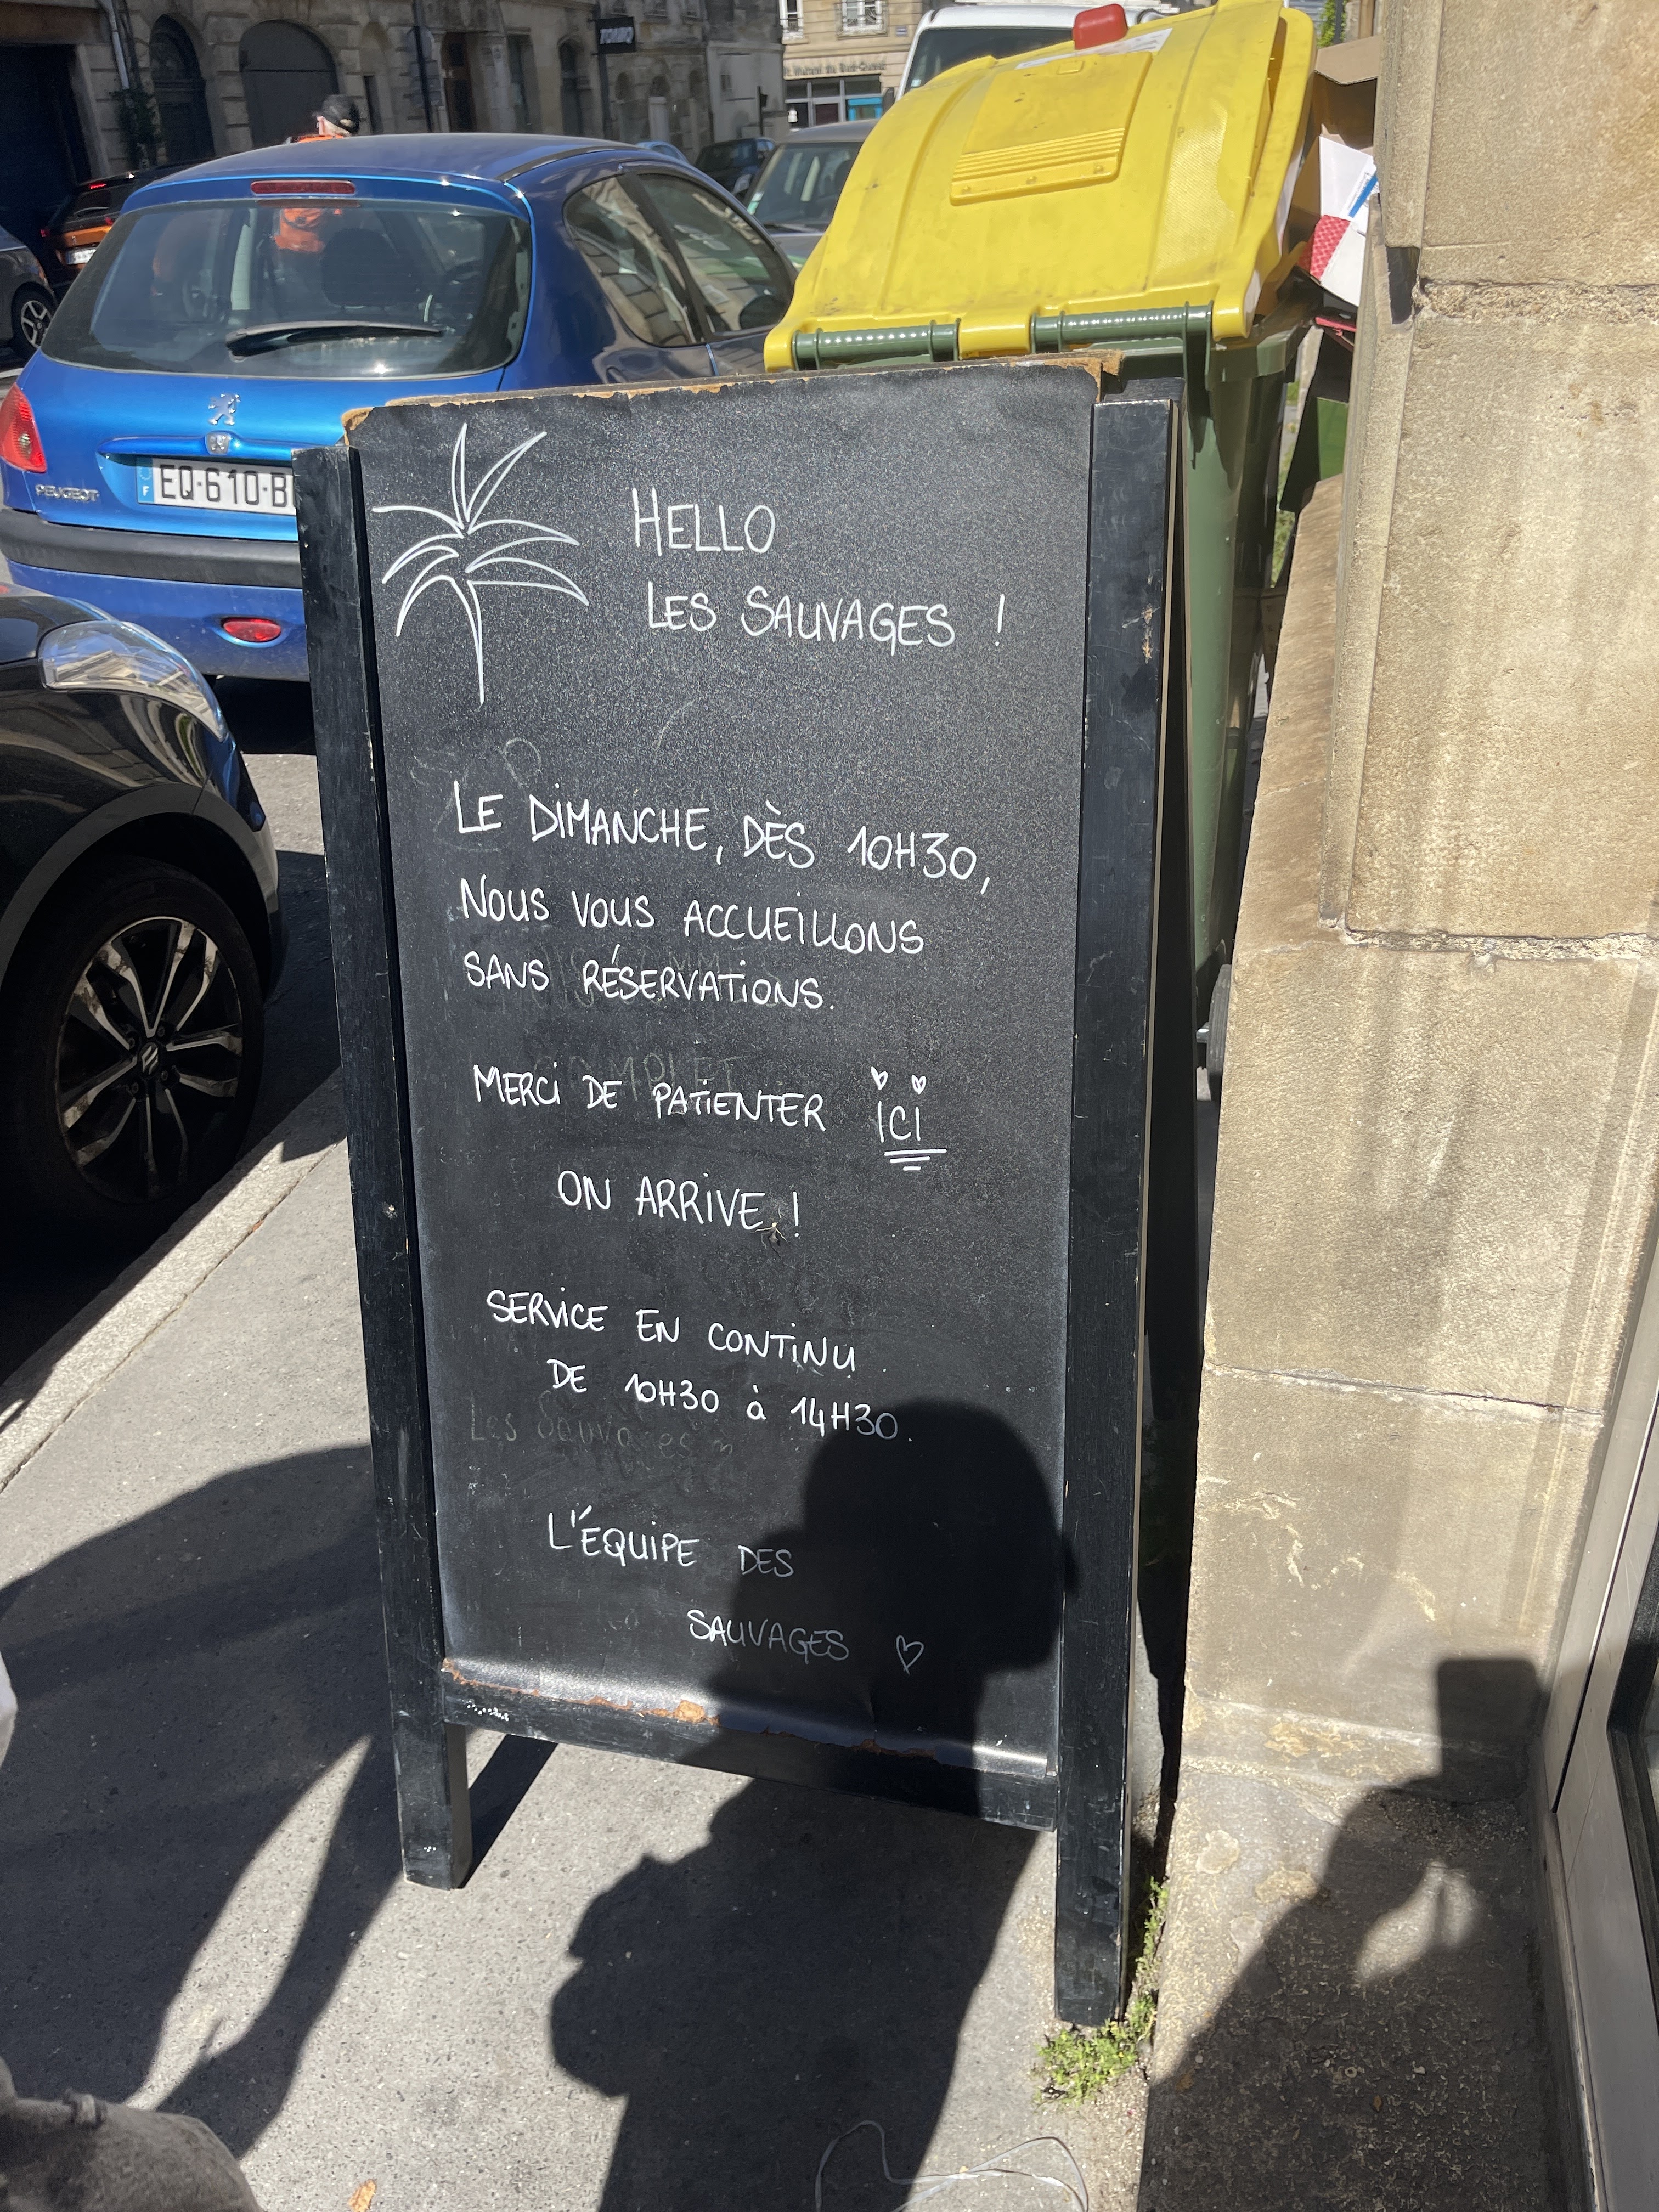 TORINO
PEUGEOT
F
EQ-610-B
HELLO
LES SAUVAGES !
LE DIMANCHE, DÈS 10H30,
NOUS VOUS ACCUEILLONS
SANS RÉSERVATIONS.
COMPLET
MERCI DE PATIENTER ICI
ON ARRIVE !
SERVICE EN CONTINU
DE 10H30 à 14H30.
Les Sauvages
L'ÉQUIPE DES
SAUVAGES